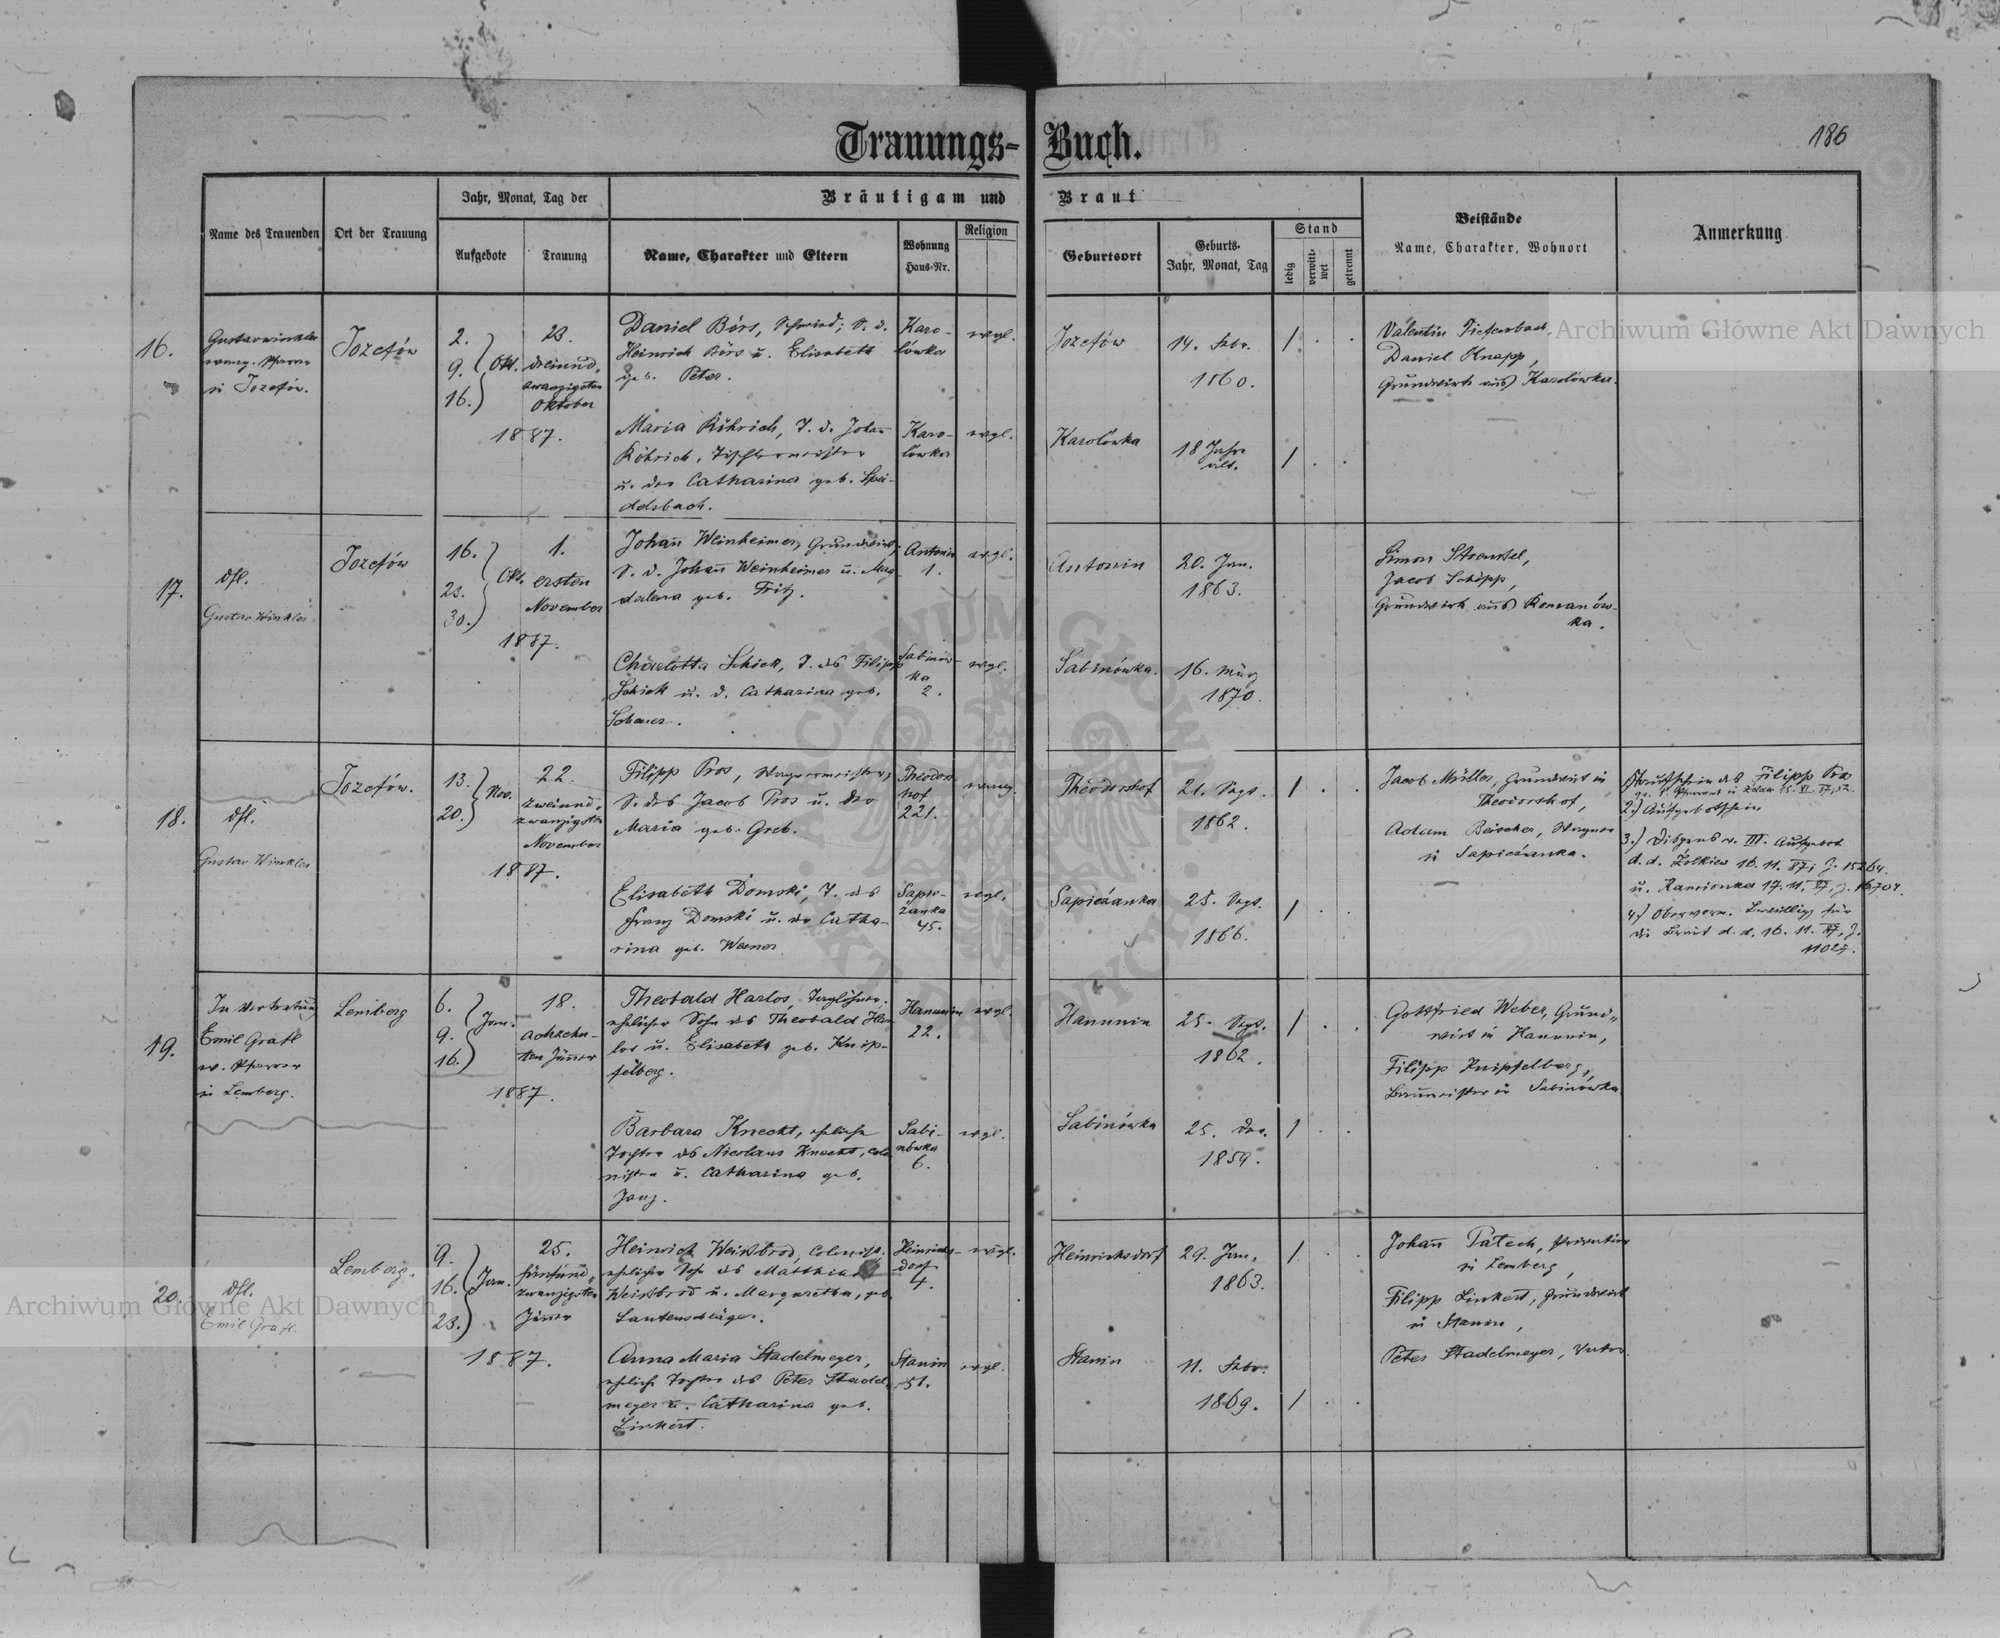 Trauungs- Buch.
186
Name des Trauenden
Ort der Trauung
Jahr, Monat, Tag der
Aufgebote
Trauung
Bräutigam und Braut
Name, Charakter und Eltern
Wohnung
Haus-Nr.
Religion
Geburtsort
Geburts-
Jahr, Monat, Tag
Stand
ledig
verwitt-
wet
getrennt
Beistände
Name, Charakter, Wohnort
Anmerkung
16.
Gustav Winkler
evang. Pfarrer
in Josefów.
Jozefów
2.
9. Okt.
16.
23.
dreiund-
zwanzigsten
Oktober
1887.
Daniel Börs, Schmied; S. d.
Heinrich Börs u. Elisabeth
geb. Peter.
Karo-
lówka
evgl.
Jozefów
14. Febr.
1860.
1 . .
Valentin Tiefenbach,
Daniel Knapp,
Grundwirte aus Karolówka.
Maria Röhrich, T. d. Johann
Röhrich, Tischlermeister
u. der Catharina geb. Spei-
delsbach.
Karo-
lówka
evgl.
Karolówka
18 Jahre
alt.
1 . .
17.
dfl.
Gustav Winkler
Jozefów
16.
23. Okt.
30.
1.
ersten
November
1887.
Johann Weinheimer, Grundwirt,
S. d. Johann Weinheimer u. Mag-
dalena geb. Fritz.
Antonin
1.
evgl.
Antonin
20. Jan.
1863.
Simon Stoensel,
Jacob Schipp,
Grundwirte aus Romanów-
ka.
Charlotta Schick, T. des Filipp
Schick u. d. Catharina geb.
Schauer.
Sabinów-
ka
2.
evgl.
Sabinówka.
16. März
1870.
18.
dfl.
Gustav Winkler
Jozefów.
13. Nov.
20.
22.
zweiund-
zwanzigsten
November
1887.
Filipp Pros, Wagnermeister,
S. des Jacob Pros u. der
Maria geb. Greb.
Theodors-
hof
221.
evang.
Theodorshof
21. Sept.
1862.
1 . .
Jacob Müller, Grundwirt in
Theodorshof,
Adam Beischer, Wagner
in Sapiezanka.
Taufschein des Filipp Pros
2.) Aufgebotschein
3.) Dispens v. III. Aufgebot
d. d. Żołkiew 16. 11. 87, Z. 15264.
u. Kamionka 17. 11. 87, Z. 16704.
4.) Oberworm. Bewillig. für
die Braut d. d. 16. 11. 87, Z.
11027.
Elisabeth Domski, T. des
Franz Domski u. der Catha-
rina geb. Werner
Sapie-
żanka
45.
evgl.
Sapieżanka
25. Sept.
1866.
1 . .
19.
In Vertretung
Emil Grafl
ev. Pfarrer
in Lemberg.
Lemberg
6.
9. Jan.
16.
18.
achzehn-
ten Jänner
1887.
Theobald Harlos, Taglöhner,
ehelicher Sohn des Theobald Har-
los u. Elisabeth geb. Knip-
felberg.
Hanunin
22.
evgl.
Hanunin
25. Sept.
1862.
1 . .
Gottfried Weber, Grund-
wirt in Hanunin,
Filipp Knipfelberg,
Baumeister in Sabinówka
Barbara Knecht, eheliche
Tochter des Nicolaus Knecht, Colo-
nisten u. Catharina geb.
Jung.
Sabi-
nówka
6.
evgl.
Sabinówka
25. Dec.
1859.
1 . .
20.
dfl.
Emil Grafl.
Lemberg.
9.
16. Jan.
23.
25.
fünfund-
zwanzigsten
Jänner
1887.
Heinrich Weissbrod, Colonist,
ehelicher Sohn des Matthias
Weissbrod u. Margaretha, geb.
Lautenschläger.
Heinrichs-
dorf
4.
evgl.
Heinrichsdorf
29. Jan.
1863.
1 . .
Johann Patech, Privatier
in Lemberg,
Filipp Linkert, Grundwirt
in Stanin,
Peter Stadelmeyer, Vater.
Anna Maria Stadelmeyer,
eheliche Tochter des Peter Stadel-
meyer u. Catharina geb.
Linkert.
Stanin
51.
evgl.
Stanin
11. Febr.
1869.
1 . .
Archiwum Główne Akt Dawnych
Archiwum Główne Akt Dawnych
ARCHIWUM GŁÓWNE AKT DAWNYCH